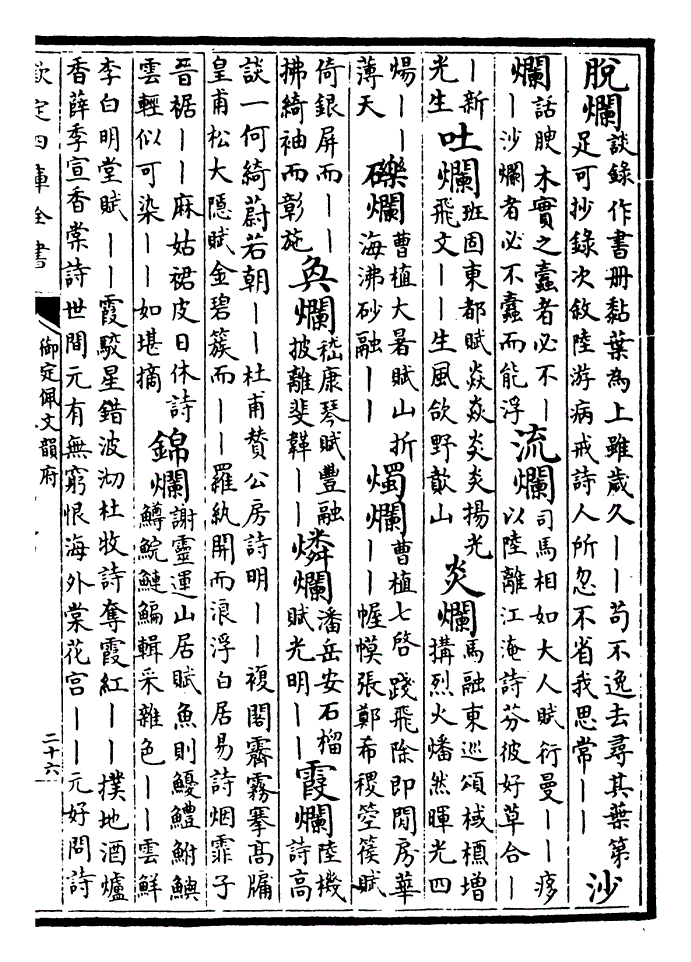 脫爛談錄作書冊黏葉為上雖歲久——苟不逸去尋其葉第足可抄錄次敘陸游病戒詩人所忽不省我思常——沙
爛話腴木實之蠹者必不——沙爛者必不蠹而能浮流爛司馬相如大人賦衍曼——痑以陸離江淹詩芬彼好草合—
—新光生吐爛班固東都賦焱焱炎炎揚光飛文——生風欱野歕山炎爛馬融東巡頌棫槱增搆烈火燔然暉光四
煬——薄天礫爛曹植大暑賦山折海沸砂融——燭爛曹植七啓踐飛除即閒房華——幄幙張鄭希稷箜篌賦
倚銀屏而——拂綺袖而彰施奐爛嵇康琴賦豐融披離斐韡——燐爛潘岳安石榴賦光明——霞爛陸機詩高
談一何綺蔚若朝——杜甫贊公房詩明——複閣霽霧搴高牖皇甫松大隱賦金碧簇而——羅紈開而浪浮白居易詩烟霏子
晉裾——麻姑裙皮日休詩雲輕似可染——如堪摘錦爛謝靈運山居賦魚則鱧鮒鱮鱒鯇鰱鯿輯采雜色——雲鮮
李白明堂賦——霞駮星錯波沏杜牧詩奪霞紅——撲地酒爐香薛季宣香棠詩世間元有無窮恨海外棠花宮——元好問詩
欽定四庫全書
御定佩文韻府
二十六